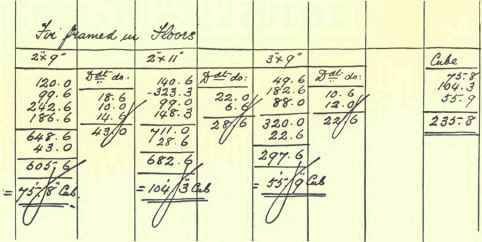 Fir framed in Floors
2"x9"
120.0
99.6
242.6
186.6
648.6
43.0
605.6
= 75'.8" Cub.
Ddt do:
18.6
10.0
14.6
43.0
2"x11"
140.6
-323.3
99.0
148.3
711.0
28.6
682.6
= 104'.3" Cub
Ddt do:
22.0
6.6
28.6
3"x9"
49.6
182.6
88.0
320.0
22.6
297.6
= 55'.9" Cub
Ddt do:
10.6
12.0
22.6
Cube
75.8
104.3
55.9
235.8